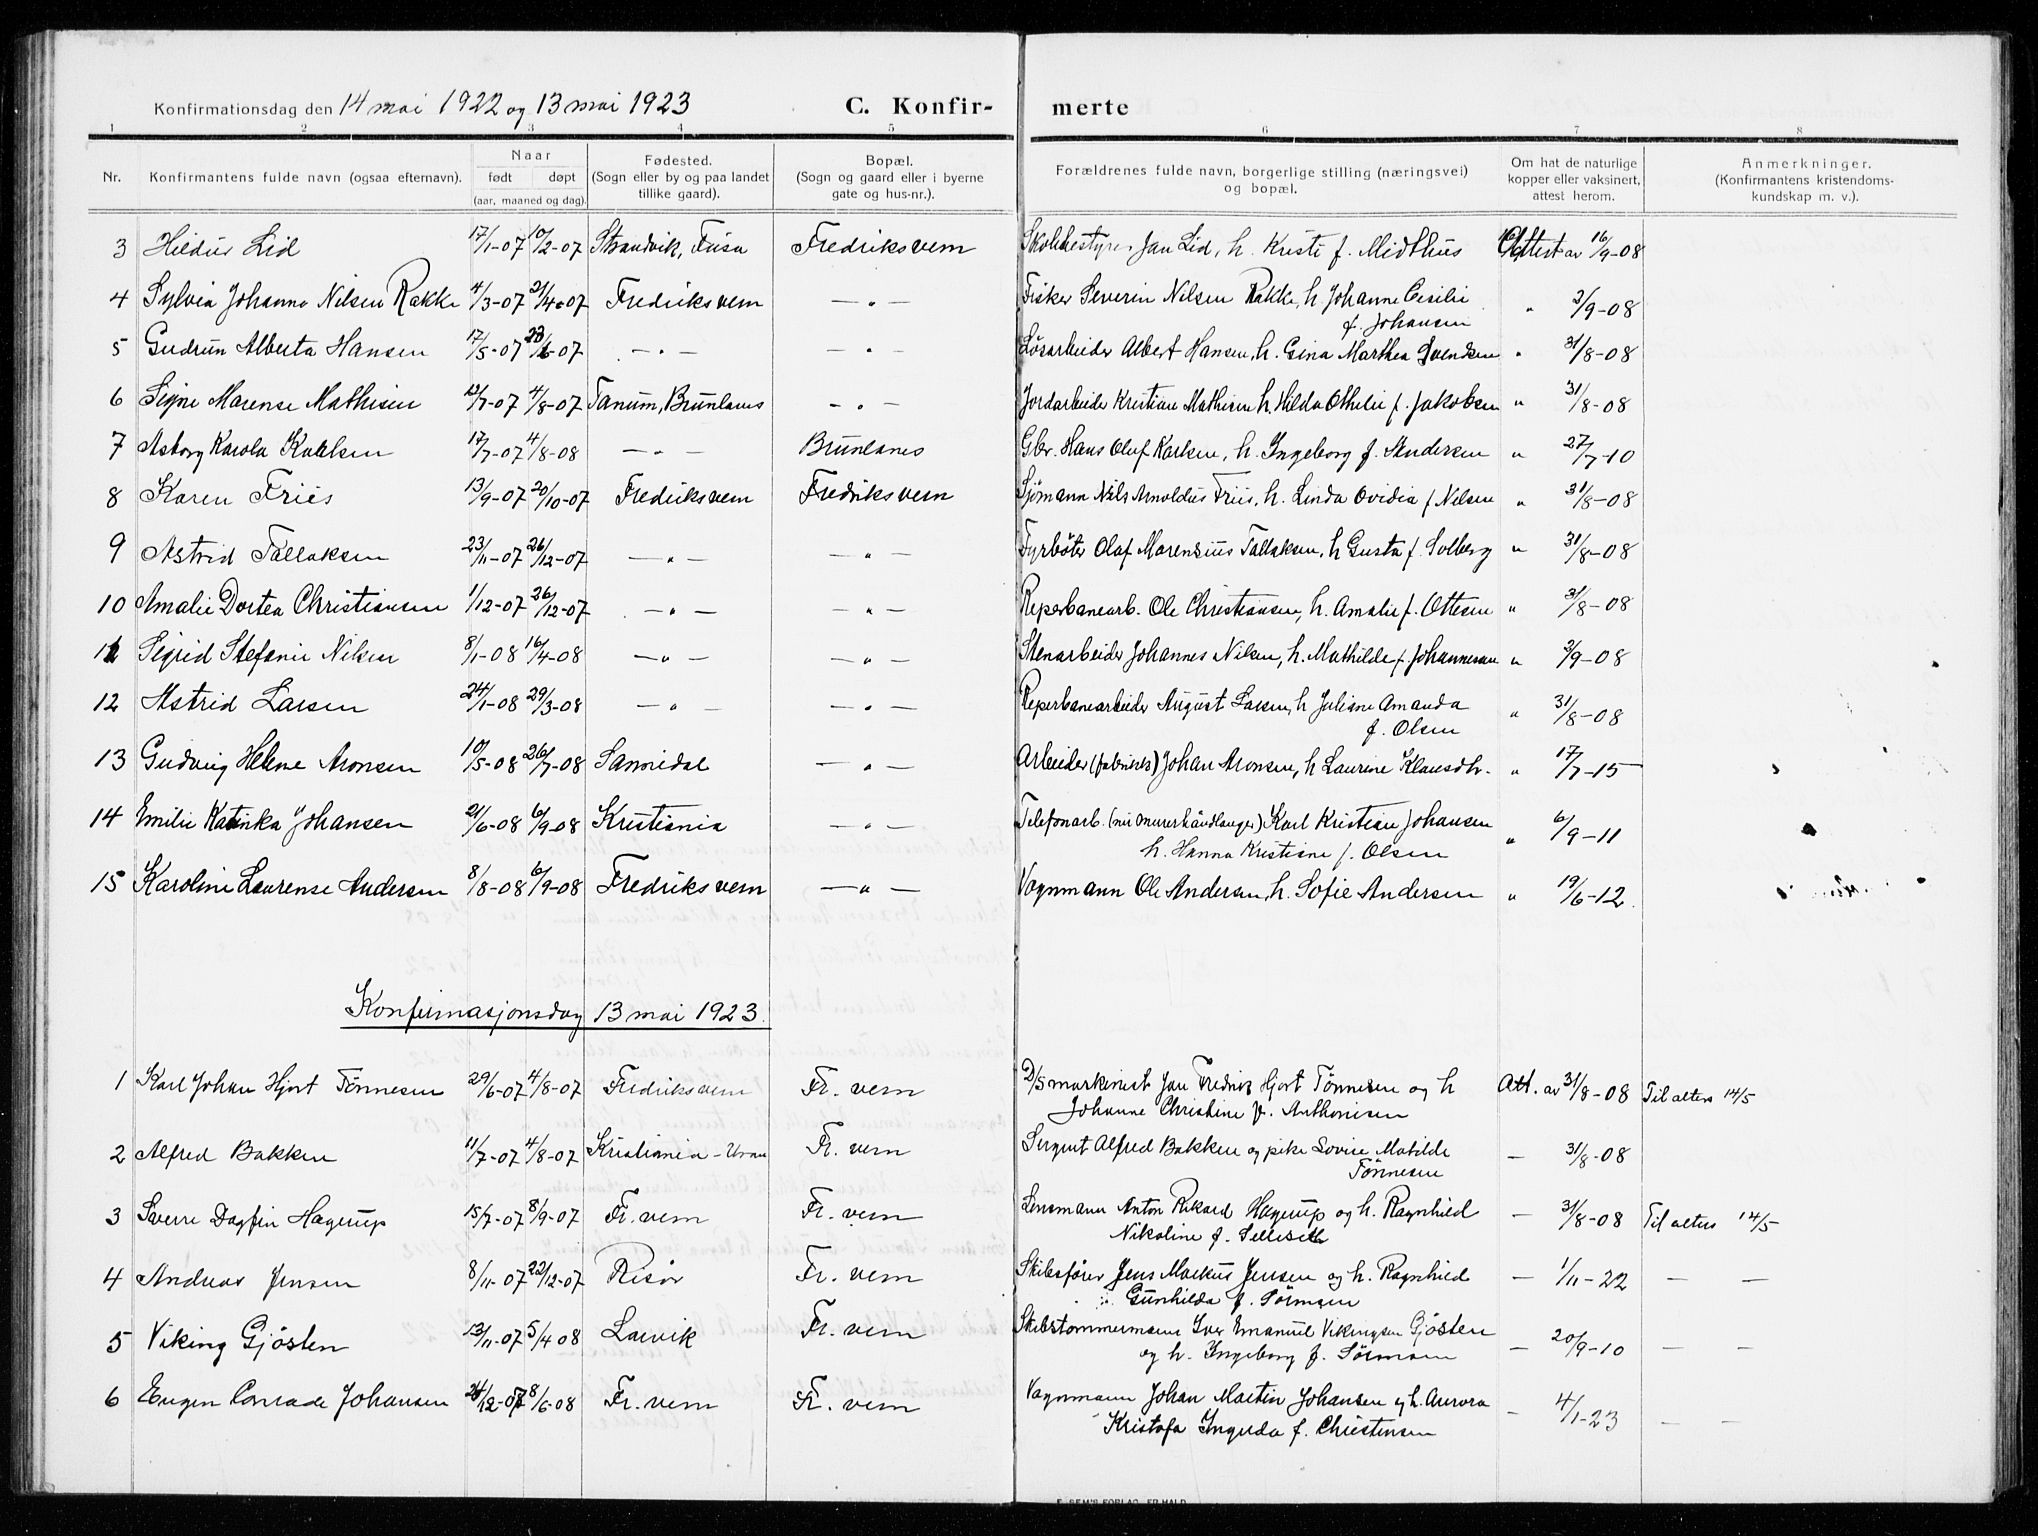 Konfirmationsdag den 14 mai 1922 og 13 mai 1923 C. Konfir- merte
1 2 3 4 5 6 7 8
Nr. Konfirmantens fulde navn (ogsaa efternavn). Naar født døpt (aar, maaned og dag). Fødested. (Sogn eller by og paa landet tillike gaard). Bopæl. (Sogn og gaard eller i byerne gate og hus-nr.). Forældrenes fulde navn, borgerlige stilling (næringsvei) og bopæl. Om hat de naturlige kopper eller vaksinert, attest herom. Anmerkninger. (Konfirmantens kristendoms- kundskap m. v.).
3 Hildur Lid 17/1-07 10/2-07 Strandvik, Fusa Fredriksvern Skolebestyrer Jan Lid, h. Kristi f. Midthus Attest av 16/9-08
4 Sylvia Johanna Nilsen Rakke 4/3-07 21/4-07 Fredriksvern — " — Fisker Severin Nilsen Rakke, h. Johanne Cecilie " 2/9-08
f. Johansen
5 Gudrun Alberta Hansen 17/5-07 23/6-07 — " — — " — Løsarbeider Albert Hansen, h. Gina Marthea Svendsen " 31/8-08
6 Signe Marense Mathisen 13/7-07 4/8-07 Tanum, Brunlanes — " — Jordarbeider Kristian Mathisen h. Hilda Othelie f. Jakobsen " 31/8-08
7 Asborg Karola Karlsen 17/7-07 4/8-08 — " — Brunlanes Gbr. Hans Oluf Karlsen, h. Ingeborg f. Andersen " 27/7-10
8 Karen Friis 13/9-07 20/10-07 Fredriksvern Fredriksvern Sjømann Nils Arnoldus Friis, h. Linda Ovidia f Nilsen " 31/8-08
9 Astrid Tallaksen 23/11-07 26/12-07 — " — — " — Fyrbøter Olaf Marensius Tallaksen, h Gusta f. Solberg " 31/8-08
10 Amalie Dortea Christiansen 1/12-07 26/12-07 — " — — " — Reperbanearb. Ole Christiansen, h. Amalie f. Ottesen " 31/8-08
11 Sigrid Stefanie Nilsen 8/1-08 16/4-08 — " — — " — Stenarbeider Johannes Nilsen, h. Mathilde f. Johannesen " 2/9-08
12 Astrid Larsen 24/1-08 29/3-08 — " — — " — Reperbanearbeider August Larsen, h Juliane Amanda " 31/8-08
f. Olsen
13 Gudveig Helene Aronsen 10/5-08 26/7-08 Sannidal — " — Arbeider (fabrikk) Johan Aronsen, h Laurine Klausdtr. " 17/7-15
14 Emilie Katinka Johansen 21/6-08 6/9-08 Kristiania — " — Telefonarb. (nu murerhåndlanger) Karl Kristian Johansen " 6/9-11
h. Hanna Kristiane f. Olsen
15 Karoline Laurense Andersen 8/8-08 6/9-08 Fredriksvern — " — Vognmann Ole Andersen, h. Sofie Andersen " 19/6-12
Konfirmasjonsdag 13 mai 1923.
1 Karl Johan Hjort Tønnesen 29/6-07 4/8-07 Fredriksvern Fr. vern D/S maskinist Jan Fredrik Hjort Tønnesen og h Att. av 31/8-08 Til alters 14/5
Johanne Christine f. Anthonisen
2 Alfred Bakken 11/7-07 4/8-07 Kristiania - Fr. vern Sergent Alfred Bakken og pike Lovise Matilde — 31/8-08
Tønnesen
3 Sverre Dagfin Hagerup 15/7-07 8/9-07 Fr. vern Fr. vern Lensmann Anton Rikard Hagerup og h. Ragnhild — 31/8-08 Til alters 14/5
Nikoline f. Selliseth
4 Andreas Jensen 8/11-07 22/12-07 Risør Fr. vern Skibsfører Jens Markus Jensen og h. Ragnhild — 1/11-22 — —
Gunhilda f. Sörmsen
5 Viking Gjösten 13/11-07 5/4 08 Larvik Fr. vern Skibstømmermann Iver Emanuel Vikingsen Gjösten — 20/9-10 — —
og h. Ingeborg f. Sørmoen
6 Eugen Conrade Johansen 24/12-07 8/6-08 Fr. vern Fr. vern Vognmann Johan Martin Johansen og h. Aurora — 4/1-23 — —
Kristofa Ingerda f. Christensen